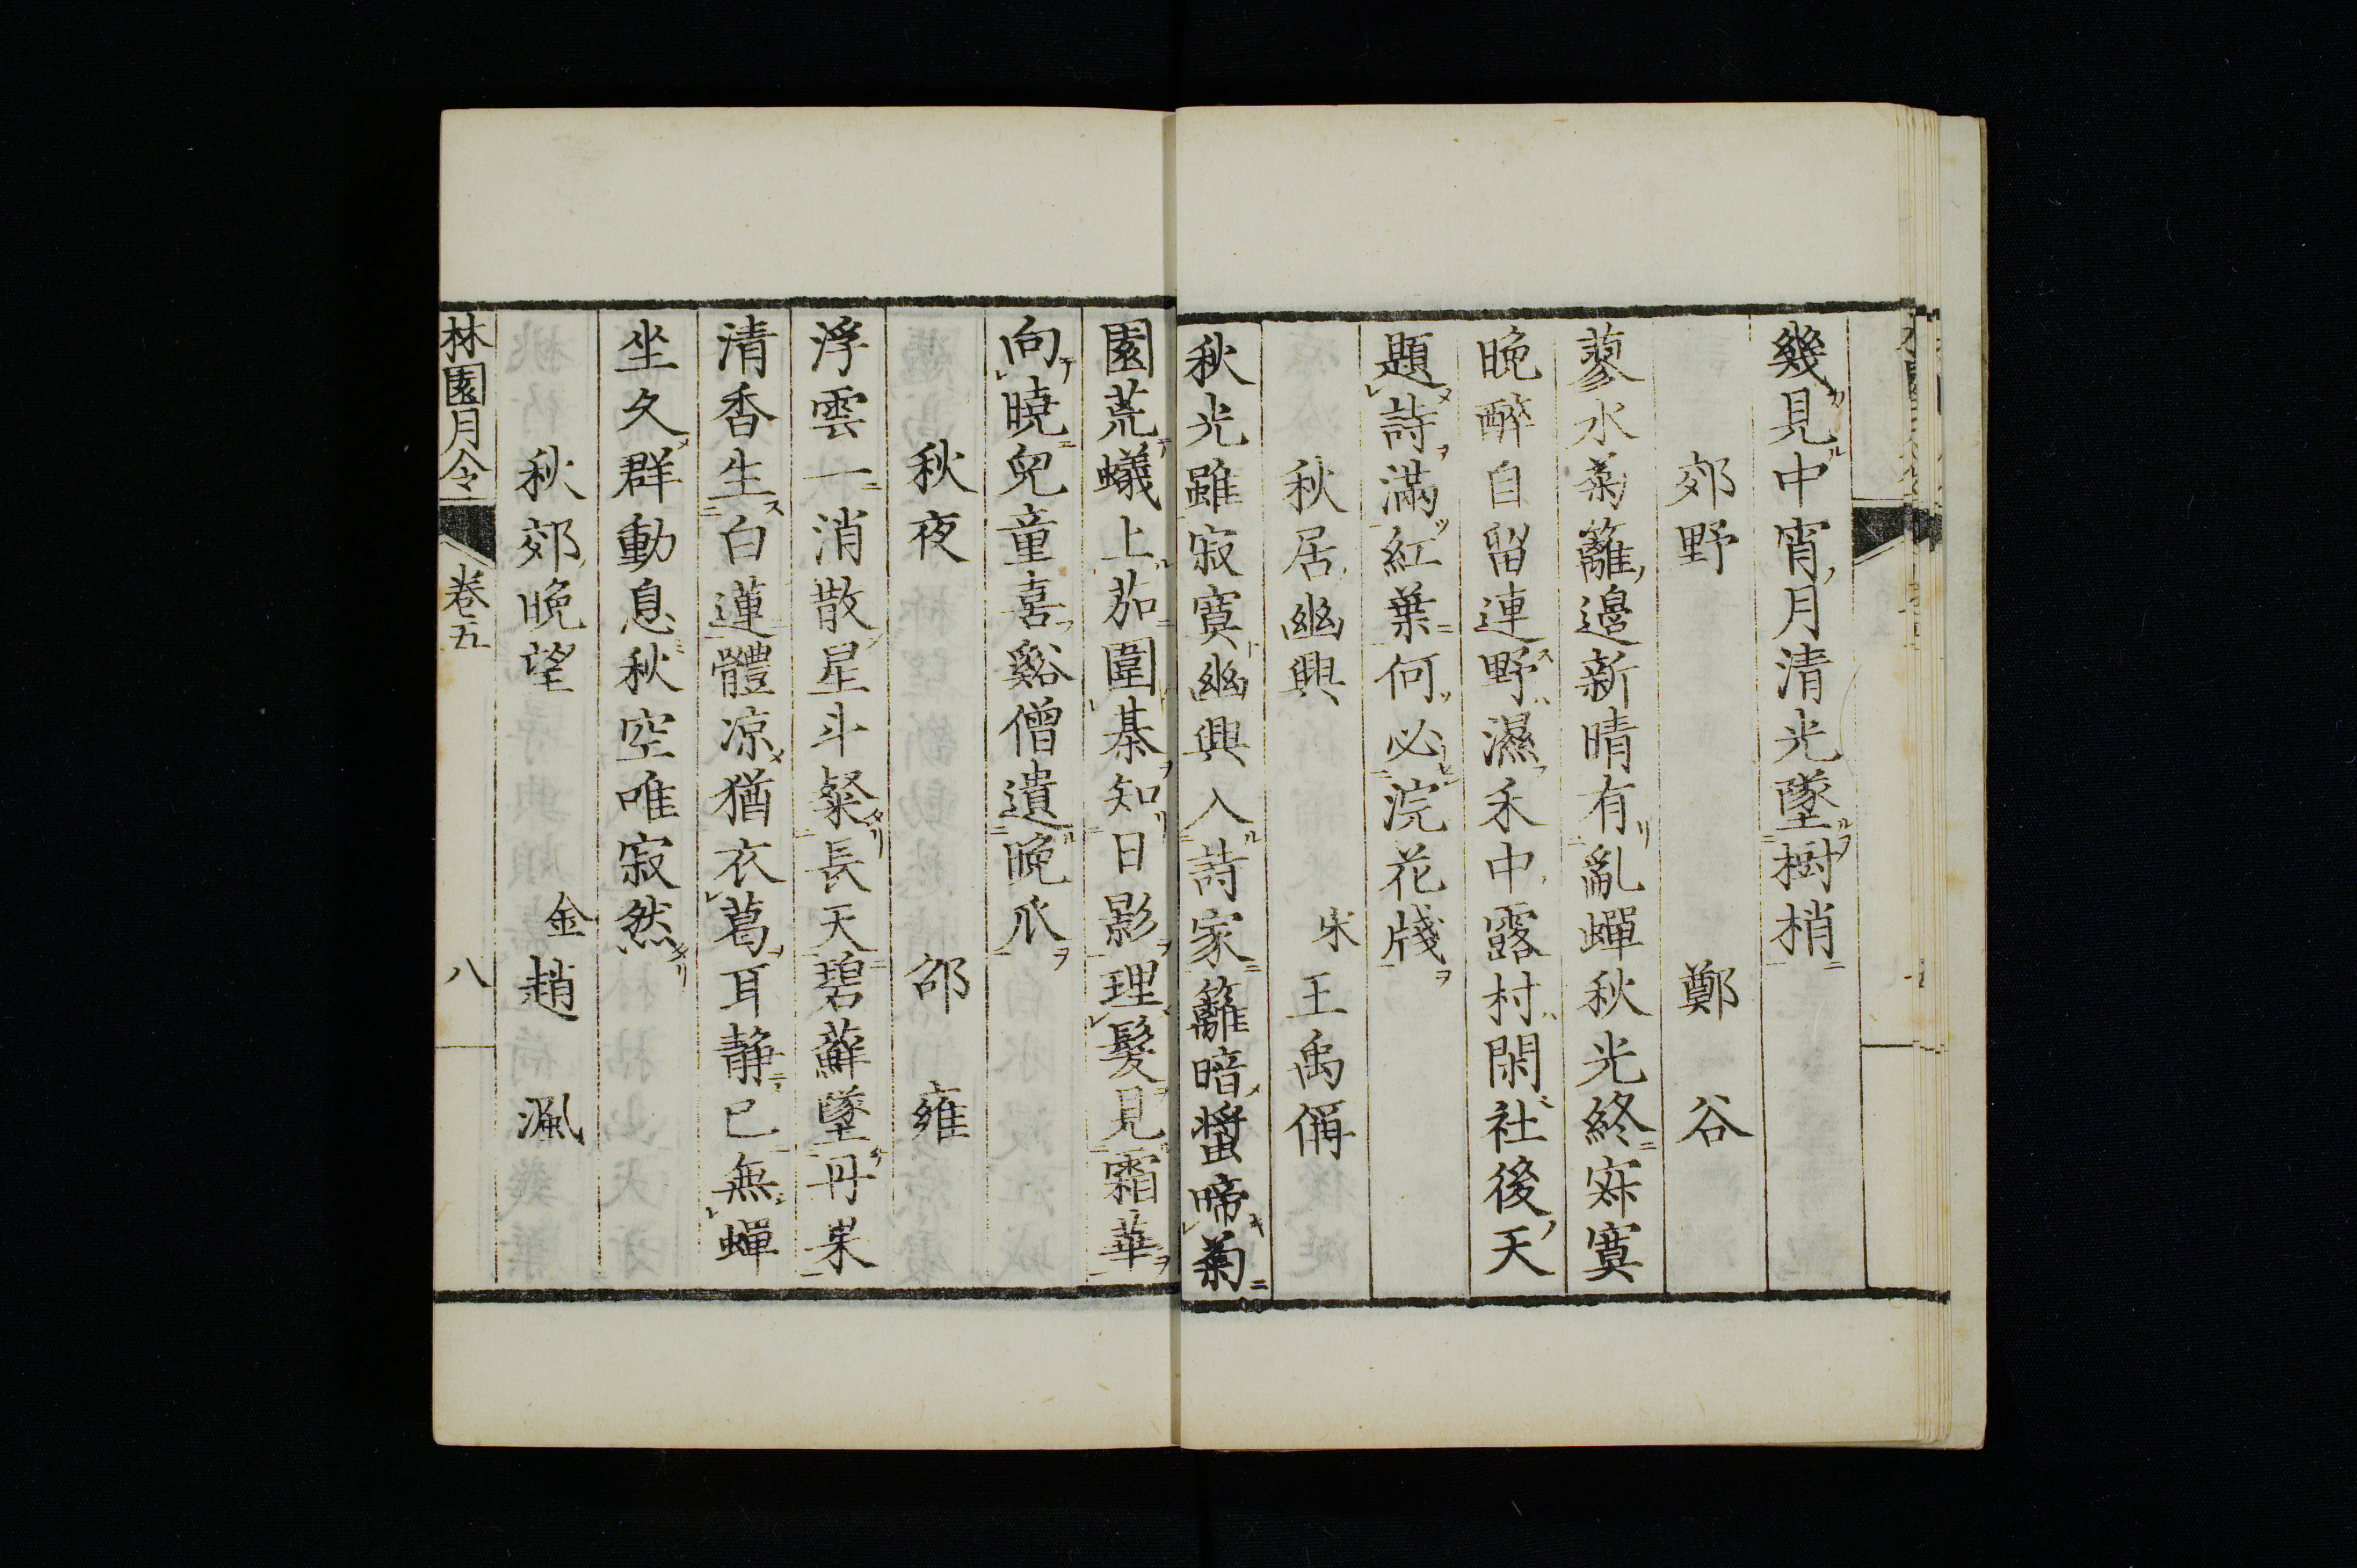 幾見中宵月清光墜樹梢
郊野　鄭谷
蓼水菊籬邊新晴有亂蟬秋光終寂寞
晚醉自留連野濕禾中露村閑社後天
題詩滿紅葉何必浣花牋
秋居幽興　宋王禹偁
秋光雖寂寞幽興入詩家籬暗蛩啼菊
園荒蟻上茄圍棊知日影理髮見霜華
向曉兒童喜谿僧遺晚瓜
秋夜　邵雍
浮雲一消散星斗粲長天碧蘚墜丹菓
清香生白蓮體凉猶衣葛耳靜已無蟬
坐久群動息秋空唯寂然
秋郊晚望　金趙渢
林園月令　卷五　八